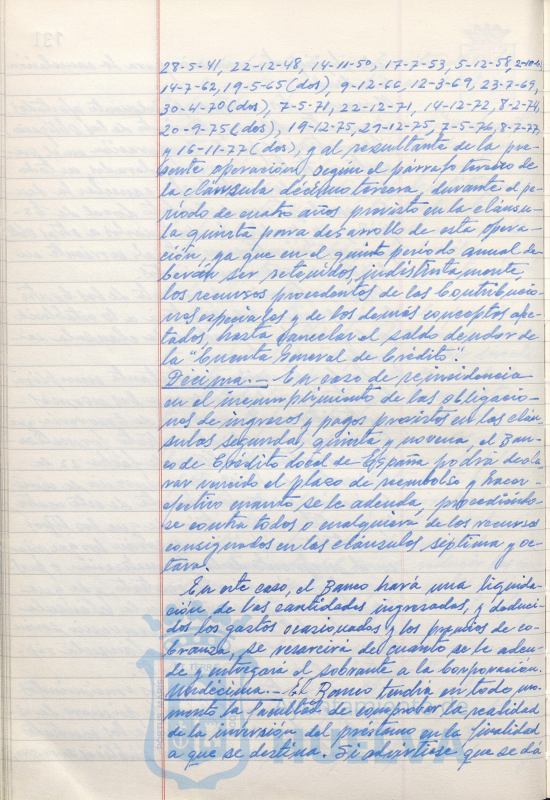 28-5-41, 22-12-48, 14-11-50, 17-7-53, 5-12-58, 2-10-61
14-7-62, 19-5-65 (dos), 9-12-66, 12-3-69, 23-7-69,
30-4-70 (dos), 7-5-71, 22-12-71, 14-12-72, 8-2-74,
20-9-75 (dos), 19-12-75, 29-12-75, 7-5-76, 8-7-77,
y 16-11-77 (dos), y al resultante de la pre-
sente operación, según el párrafo tercero de
la cláusula décimo tercera, durante el pe-
ríodo de cuatro años previsto en la cláusu-
la quinta para desarrollo de esta opera-
ción, ya que en el quinto período anual de-
berán ser retenidos, indistintamente,
los recursos procedentes de las Contribucio-
nes especiales y de los demás conceptos afec-
tados, hasta cancelar el saldo deudor de
la "Cuenta General de Crédito".
Décima.- En caso de reincidencia
en el incumplimiento de las obligacio-
nes de ingresos y pagos previstos en las cláu-
sulas segunda, quinta y novena, el Ban-
co de Crédito Local de España podrá decla-
rar vencido el plazo de reembolso y hacer
efectivo cuanto se le adeuda, procediéndo-
se contra todos o cualquiera de los recursos
consignados en las cláusulas séptima y oc-
tava.
En este caso, el Banco hará una liquida-
ción de las cantidades ingresadas, y deduci-
dos los gastos ocasionados y los premios de co-
branza, se resarcirá de cuanto se le adeu-
de y entregará el sobrante a la Corporación.
Undécima.- El Banco tendrá en todo mo-
mento la facultad de comprobar la realidad
de la inversión del préstamo en la finalidad
a que se destina. Si advirtiese que se dá